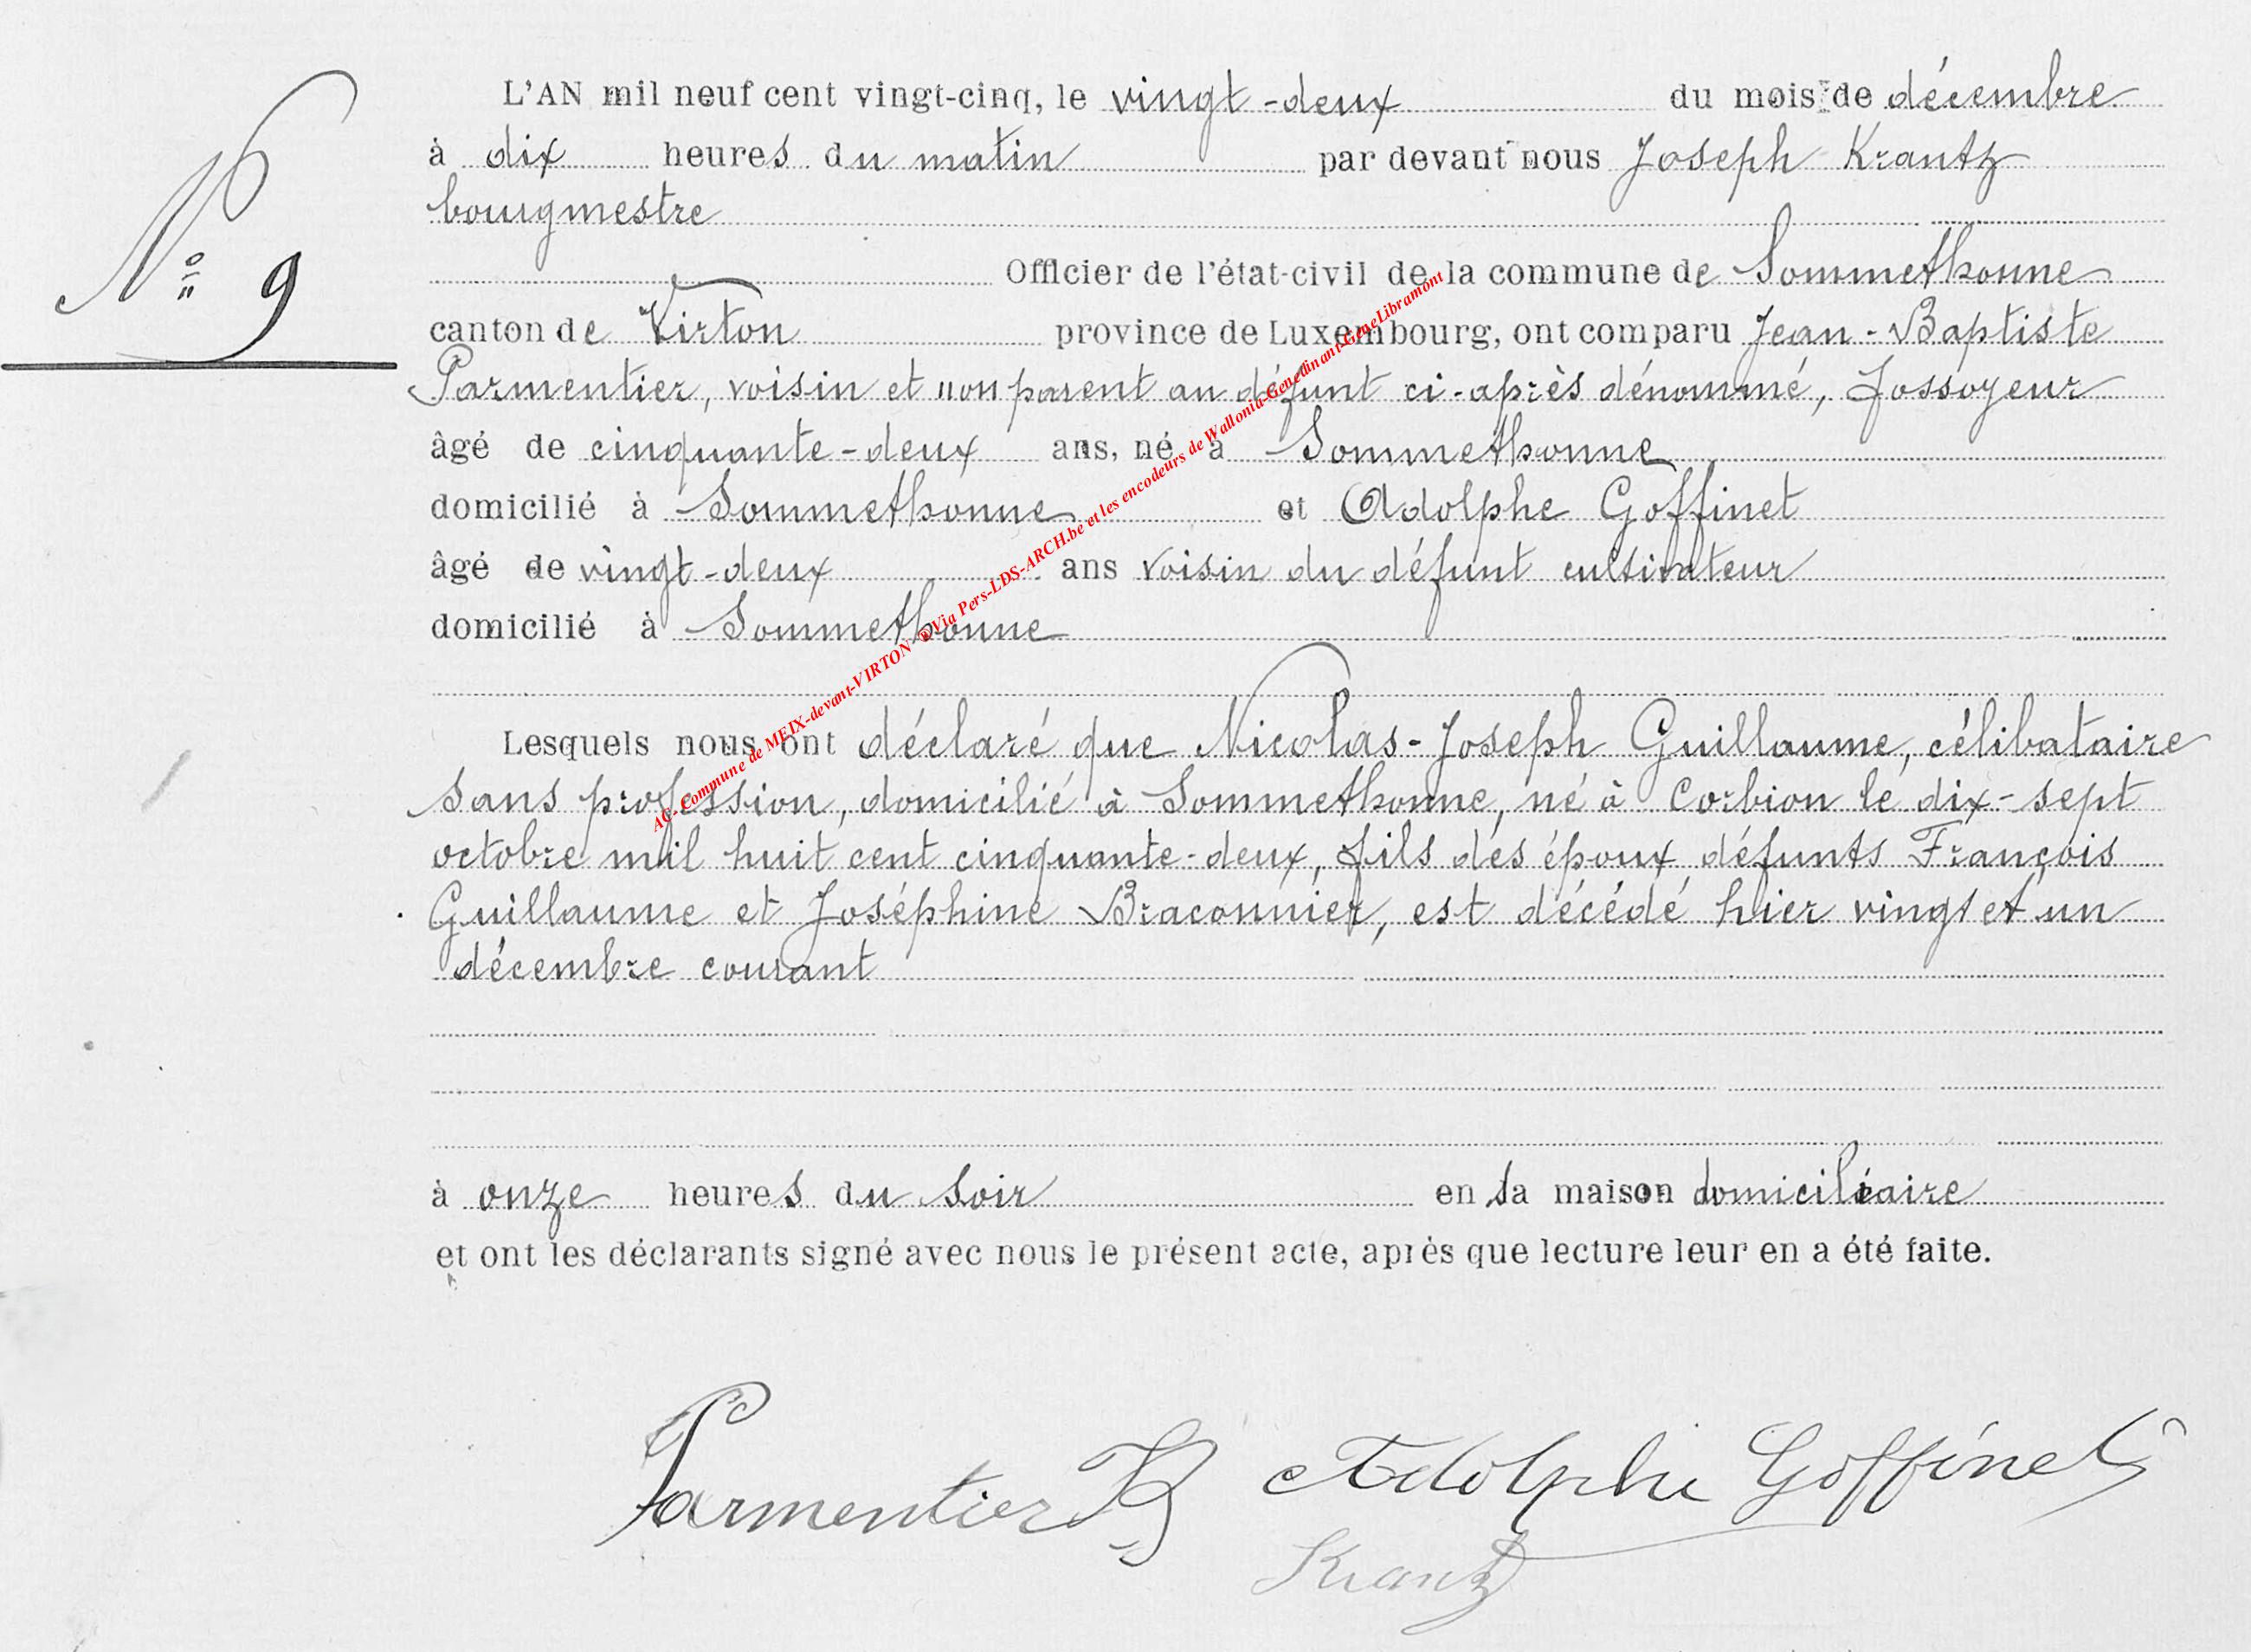 L'AN mil neuf cent vingt-cinq, le vingt-deux du mois de décembre
à dix heures du matin par devant nous Joseph Krantz
bourgmestre
Officier de l'état-civil de la commune de Sommethonne
N° 9
canton de Virton province de Luxembourg, ont comparu Jean-Baptiste
Parmentier, voisin et non parent au défunt ci-après dénommé, fossoyeur
âgé de cinquante-deux ans, né à Sommethonne
domicilié à Sommethonne et Adolphe Goffinet
âgé de vingt-deux ans voisin du défunt cultivateur
domicilié à Sommethonne
Lesquels nous ont déclaré que Nicolas-Joseph Guillaume, célibataire
sans profession, domicilié à Sommethonne, né à Corbion le dix-sept
octobre mil huit cent cinquante-deux, fils des époux défunts François
Guillaume et Joséphine Braconnier, est décédé hier vingt et un
décembre courant
à onze heures du soir en sa maison domiciliaire
et ont les déclarants signé avec nous le présent acte, après que lecture leur en a été faite.
Parmentier JB Adolphe Goffinet
Krantz
AC-Commune de MEIX-devant-VIRTON ®Via Pers-LDS-ARCH.be et les encodeurs de Wallonia-Genedinant-GeneLibramont